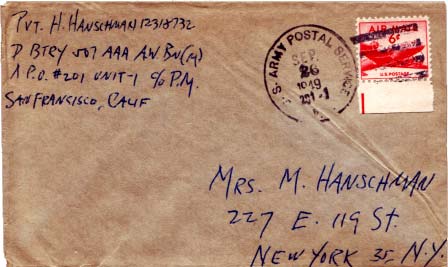 PVT. H. HANSCHMAN 12318732
D BTRY 507 AAA AW BN(M)
A.P.O. #201 UNIT-1 C/O P.M.
SAN FRANCISCO, CALIF
U.S. ARMY POSTAL SERVICE
SEP
26
1949
201-1
AIR MAIL
6¢
U.S. POSTAGE
MRS. M. HANSCHMAN
227 E. 119 St.
NEW YORK 35 N.Y.